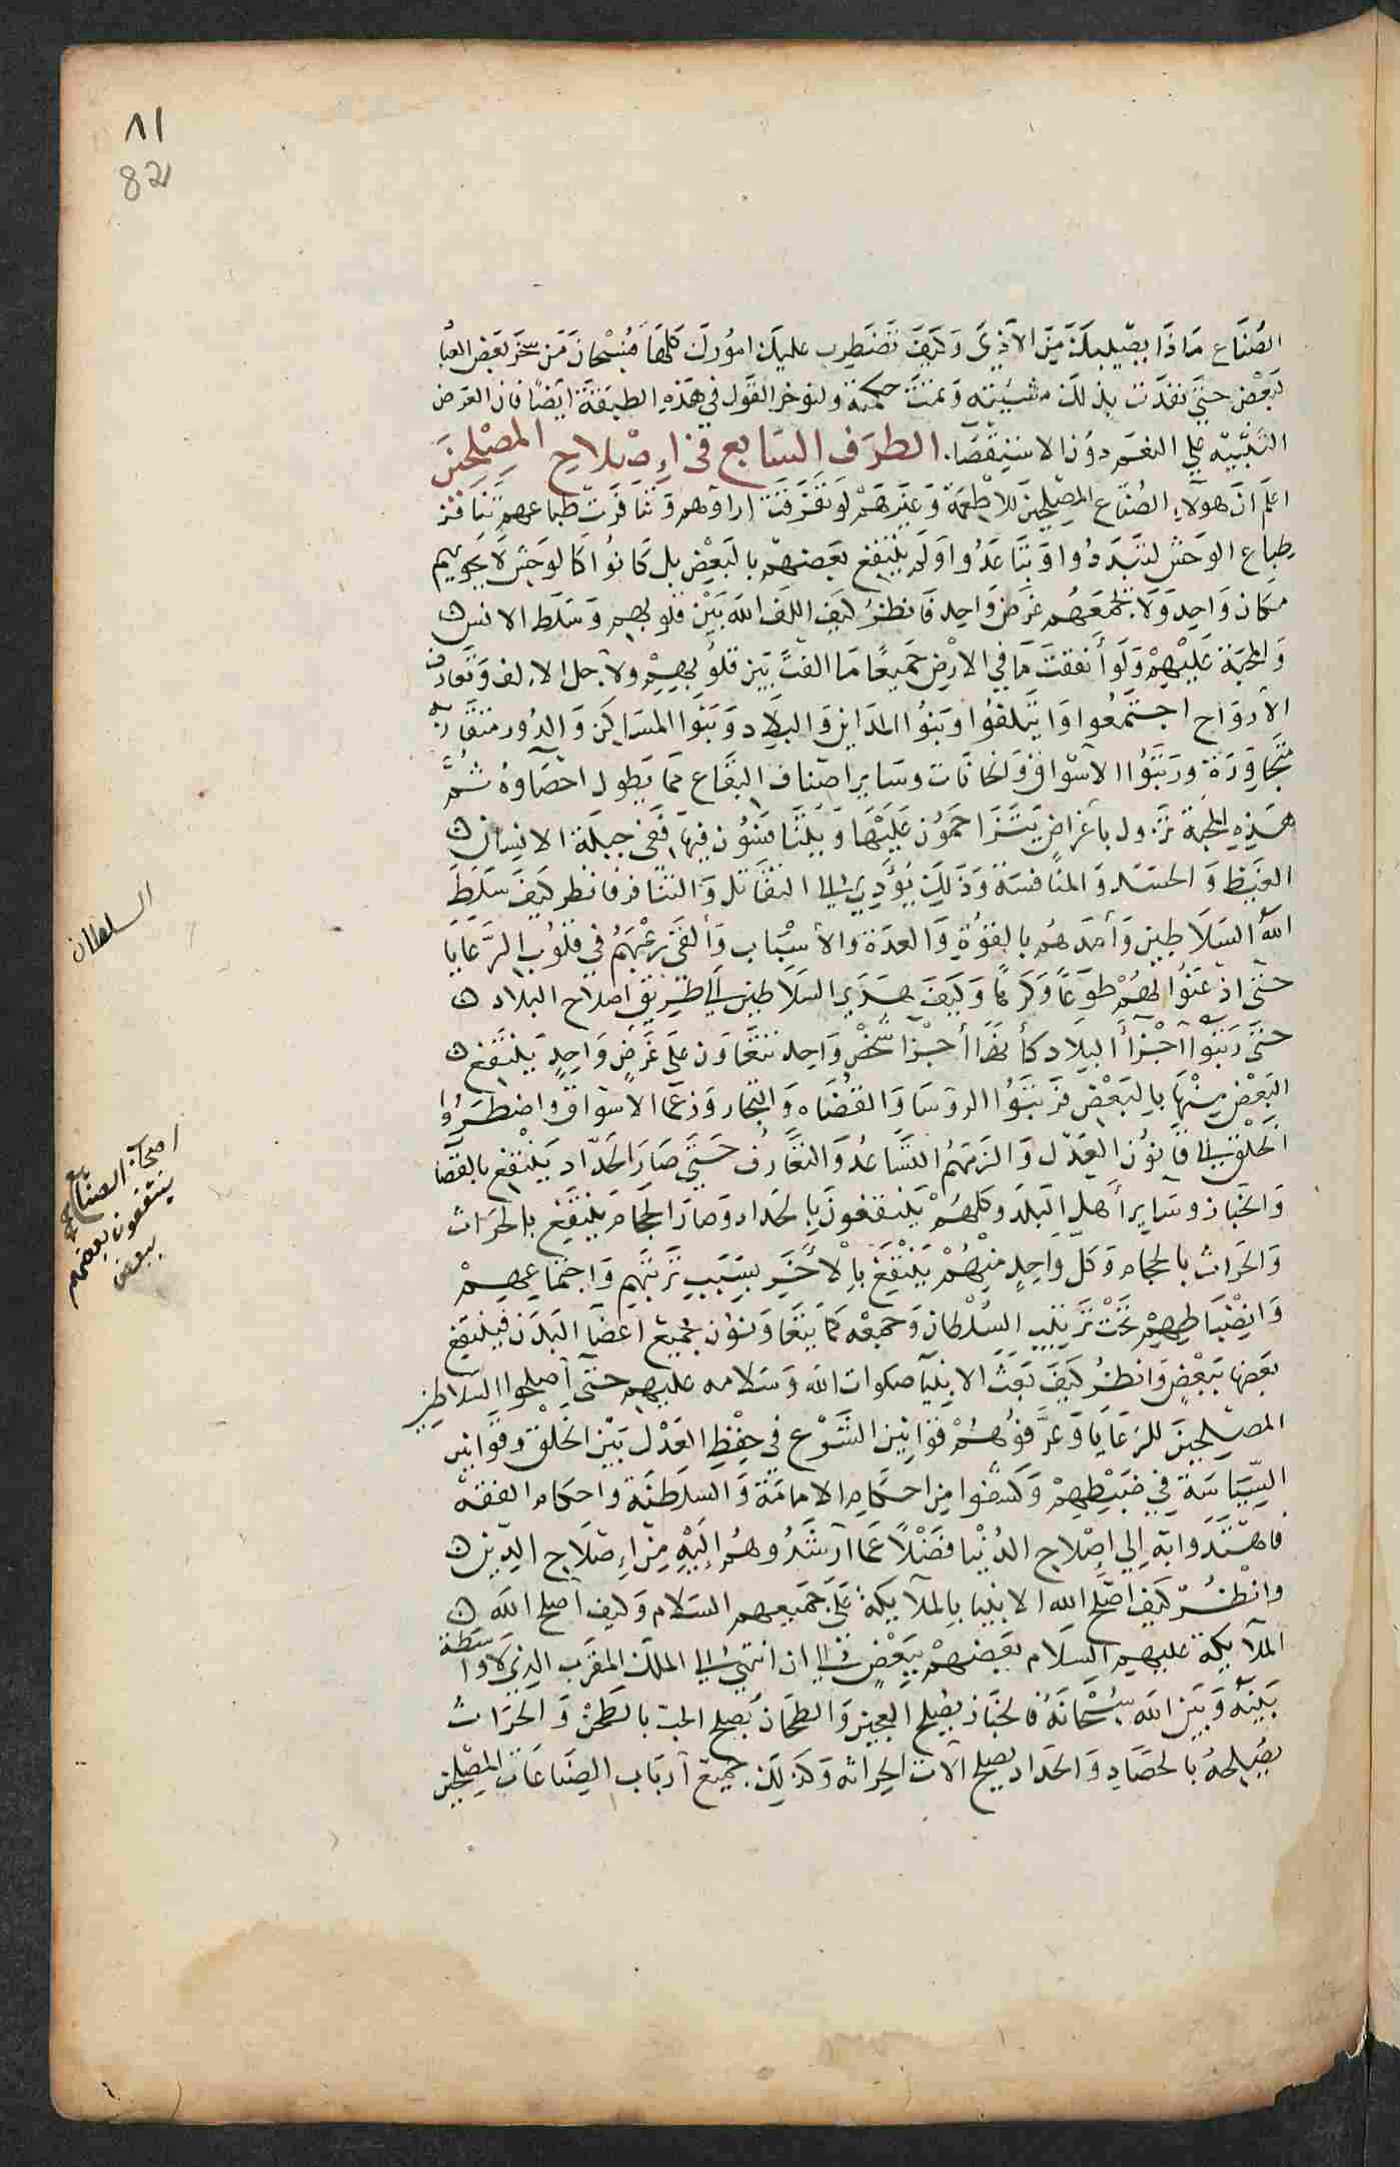 ٨١
82
الصناع ماذا يصيبك من الاذي وكيف تضطرب عليك امورك كلها فسبحان من سخر بعض العباد
لبعض حتي نفذت بذلك مشيته وتمت حكمته ولنوخر القول في هذه الطبقة ايضا فان الغرض
التنبيه علي النعم دون الاستقصا . الطرف السابع في اصلاح المصلحين
اعلم ان هولاء الصناع المصلحين للاطعمة وغيرهم لو تفرقت اراوهم وتنافرت طباعهم تنافر
طباع الوحش لتبددوا وتباعدوا ولم ينتفع بعضهم بالبعض بل كانوا كالوحش لا يحويهم
مكان واحد ولا يجمعهم غرض واحد فانظر كيف الف الله بين قلوبهم وسلط الانس
والمحبة عليهم ولو أنفقت ما في الارض جميعا ما الفت بين قلوبهم ولأجل الإلف وتعارف
الأرواح اجتمعوا وايتلفوا وبنوا المداين والبلاد وبنوا المساكن والدور متقاربة
متجاورة ورتبوا الاسواق والخانات وساير اصناف البقاع مما يطول احصاوه ثم
هذه المحبة تزول بأغراض يتزاحمون عليها ويتنافسون فيها ففي جبلة الانسان
الغيظ والحسد والمنافسة وذلك يؤدي الي التقاتل والتنافر فانظر كيف سلط
الله السلاطين وأمدهم بالقوة والعدة والأسباب وألقى رعبهم في قلوب الرعايا
حتى اذعنوا لهم طوعا وكرها وكيف هدي السلاطين الي طريق اصلاح البلاد
حتى رتبوا أجزأ البلاد كأنها أجزا شخص واحد تتعاون على غرض واحد ينتفع
البعض منها بالبعض فرتبوا الروسا والقضاه والتجار وزعما الاسواق واضطروا
الخلق الي قانون العدل والزمهم التساعد والتعارف حتي صار الحداد ينتفع بالقصا
والخباز وساير أهل البلد وكلهم ينتفعون بالحداد وصار الحجام ينتفع بالحراث
والحراث بالحجام وكل واحد منهم ينتفع بالأخر بسبب ترتبهم واجتماعهم
وانضباطهم تحت ترتيب السلطان وجمعه كما يتعاونون جميع اعضا البدن فينتفع
بعضها ببعض وانظر كيف بعث الانبيآ صلوات الله وسلامه عليهم حتى أصلحوا السلاطين
المصلحين للرعايا وعرفوهم قوانين الشرع في حفظ العدل بين الخلق وقوانين
السياسة في ضبطهم وكشفوا من احكام الامامة والسلطنة واحكام الفقه
فاهتدوا به إلي إصلاح الدنيا فضلا عما ارشدوهم إليه من إصلاح الدين
وانظر كيف اصلح الله الانبيا بالملايكة على جميعهم السلام وكيف أصلح الله
الملايكة عليهم السلام بعضهم ببعض الي ان انتهي الي الملك المقرب الذي لا واسطة
بينه وبين الله سبحانه فالخباز يصلح العجين والطحان يصلح الحب بالطحن والحراث
يصلحه بالحصاد والحداد يصلح الآت الحراثه وكذلك جميع أرباب الصناعات المصلحين
السلطان
اصحاب الصنايع
ينتفعون بعضهم
ببعض